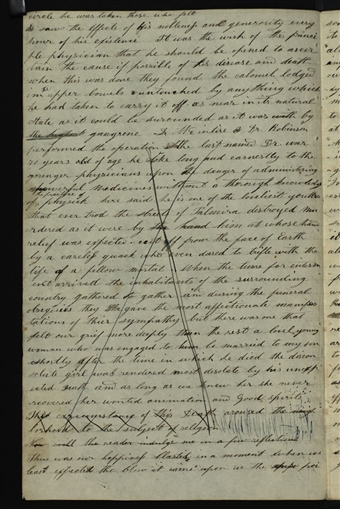 circle he was taken there who felt
& saw the effects of his nobleness and generosity every
hour of his existence It was the wish of the princi
ble physician that he should be opned to ascer
tain the cause if possible of his disease and death
when this was done they found the calomel lodged
in upper bowels untouched by anything which
he had taken to carry it off as near in its natural
state as it could be surounded as it was with by
gangrene Dr McIntire & Dr. Robinson
performed the operation the last named Dr. was
years old of age he spoke long and earnestly to the
younger physicians upon the danger of administering
powerful medicines without a thorough knowledge
of physick here said he is one of the loveliest youths
that ever trod the streets of Palmira distroyed mur
dered as it were by the hand him at whose hand
relief was expected cast off from the face of Earth
by a careless quack who even dared to trifle with the
life of a fellow mortal When the time for inter
ment arrived the inhabitants of the surrounding
country gathered to gether and during the funeral
obsequies they gave the most affectionate manifes
tations of their sympathy but there was one that
felt our grief more deeply than the rest a lovely young
woman who was engaged to be married to my son
shortly after the time in which he died the discon
solate girl was rendered most desolate by his unexpe
cted death and as long as we knew her she never
recovered her wonted animation and Good spirits
This circumstance of this Death aroused the
to the subject of religion
will the reader indulge me in a few reflections
There was our happiness blasted in a moment when we
least expected the blow it came upon us the